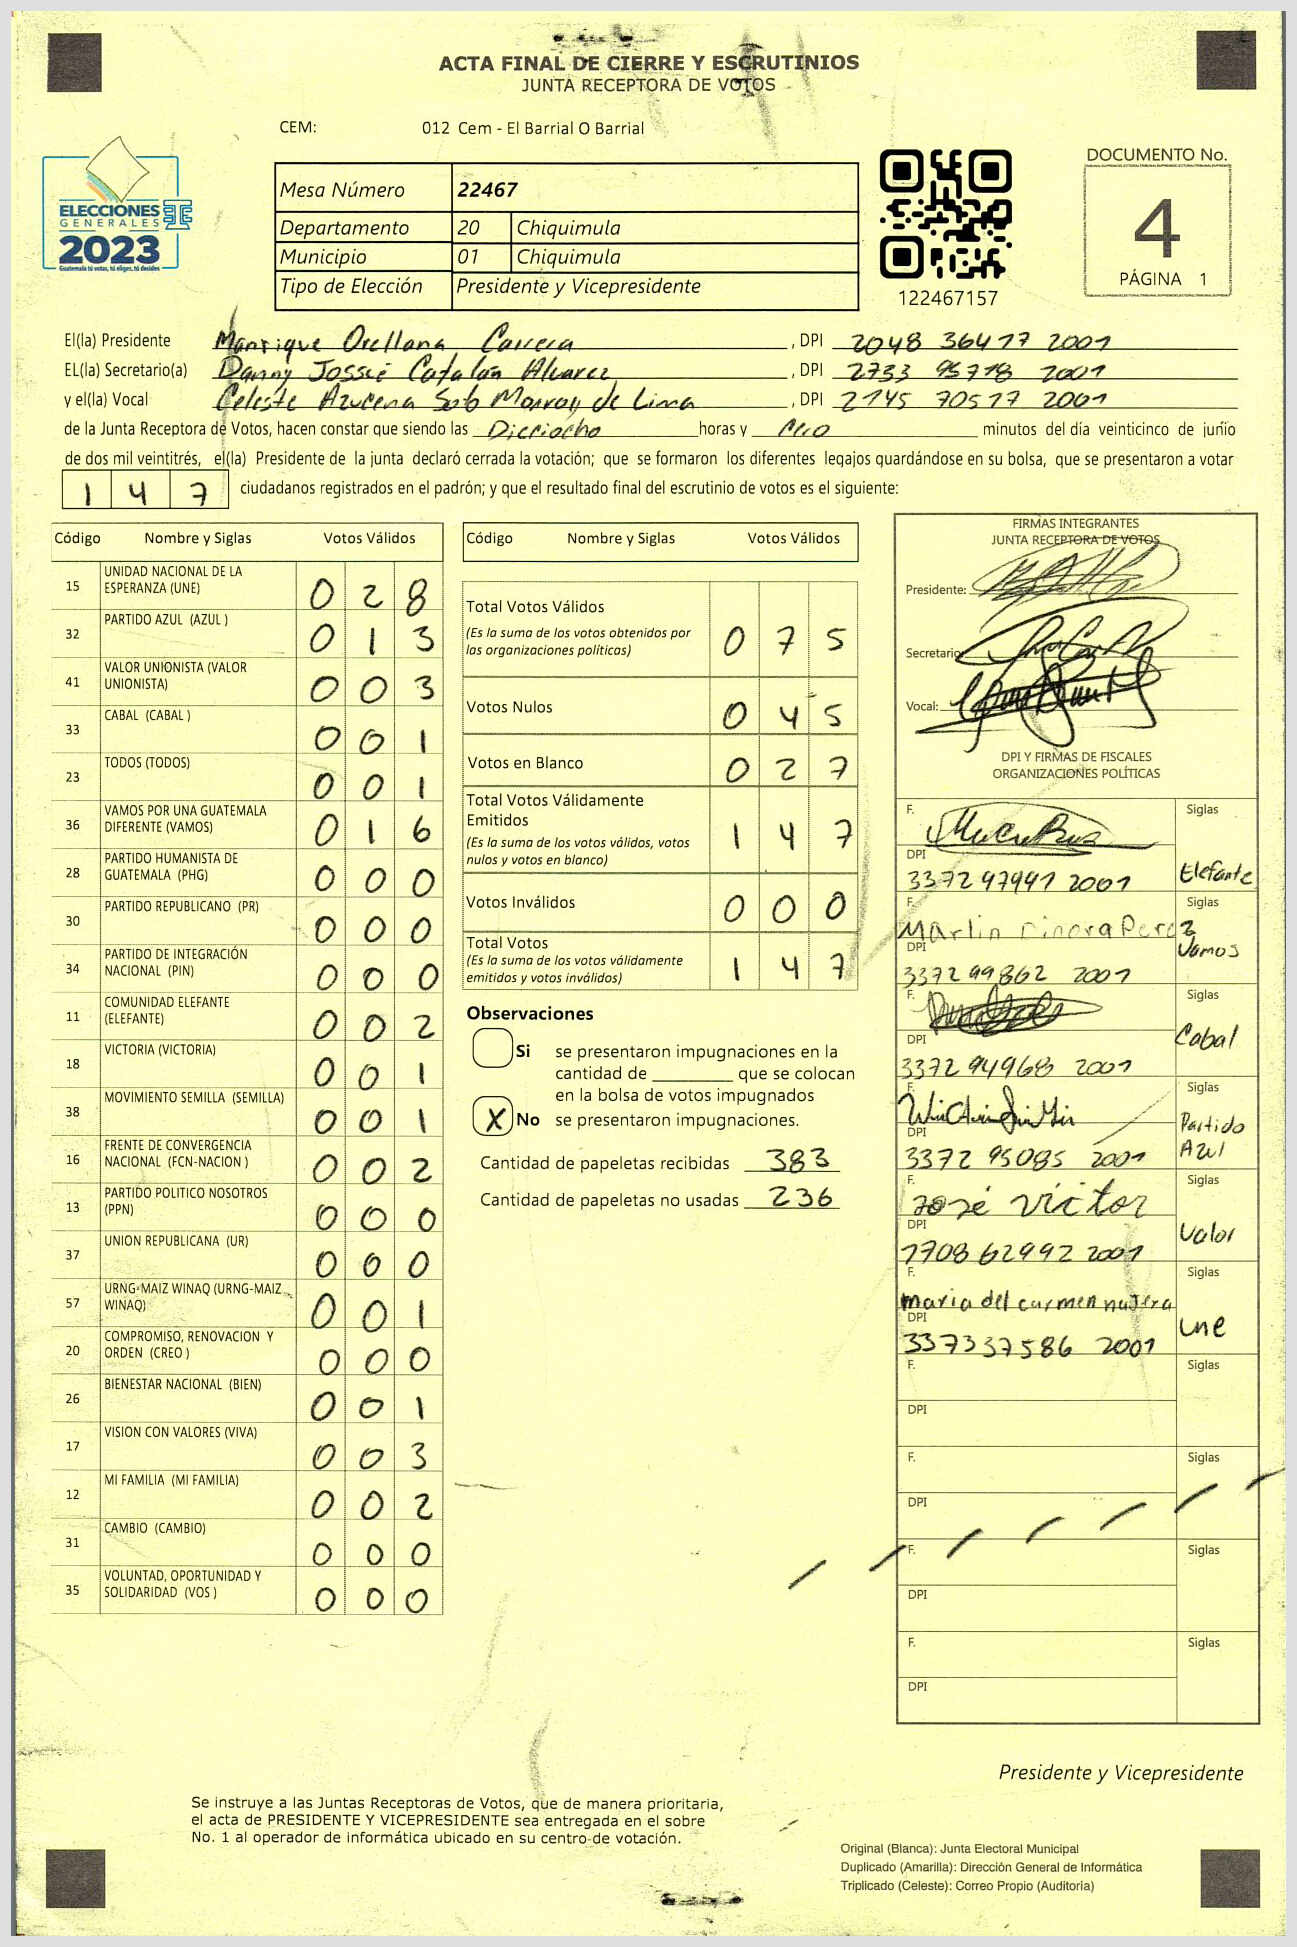 ACTA FINAL DE CIERRE Y ESCRUTINIOS
JUNTA RECEPTORA DE VOTOS
CEM: 012 Cem - El Barrial O Barrial
DOCUMENTO No.
4
PÁGINA 1
ELECCIONES
GENERALES
2023
Guatemala tú votas, tú eliges, tú decides
Mesa Número 22467
Departamento 20 Chiquimula
Municipio 01 Chiquimula
Tipo de Elección Presidente y Vicepresidente
122467157
El(la) Presidente Manrique Orellana Carrera, DPI 2048 36417 2001
EL(la) Secretario(a) Danny Jossué Catalán Alvarez, DPI 2733 95718 2001
y el(la) Vocal Celeste Azucena Monroy de Lima, DPI 2145 70517 2001
de la Junta Receptora de Votos, hacen constar que siendo las Dieciocho horas y cero minutos del día veinticinco de junio
de dos mil veintitrés, el(la) Presidente de la junta declaró cerrada la votación; que se formaron los diferentes legajos quardándose en su bolsa, que se presentaron a votar
1 4 7 ciudadanos registrados en el padrón; y que el resultado final del escrutinio de votos es el siguiente:
Código Nombre y Siglas Votos Válidos
15 UNIDAD NACIONAL DE LA
ESPERANZA (UNE) 0 2 8
32 PARTIDO AZUL (AZUL ) 0 1 3
41 VALOR UNIONISTA (VALOR
UNIONISTA) 0 0 3
33 CABAL (CABAL ) 0 0 1
23 TODOS (TODOS) 0 0 1
36 VAMOS POR UNA GUATEMALA
DIFERENTE (VAMOS) 0 1 6
28 PARTIDO HUMANISTA DE
GUATEMALA (PHG) 0 0 0
30 PARTIDO REPUBLICANO (PR) 0 0 0
34 PARTIDO DE INTEGRACIÓN
NACIONAL (PIN) 0 0 0
11 COMUNIDAD ELEFANTE
(ELEFANTE) 0 0 2
18 VICTORIA (VICTORIA) 0 0 1
38 MOVIMIENTO SEMILLA (SEMILLA) 0 0 1
16 FRENTE DE CONVERGENCIA
NACIONAL (FCN-NACION ) 0 0 2
13 PARTIDO POLITICO NOSOTROS
(PPN) 0 0 0
37 UNION REPUBLICANA (UR) 0 0 0
57 URNG-MAIZ WINAQ (URNG-MAIZ
WINAQ) 0 0 1
20 COMPROMISO, RENOVACION Y
ORDEN (CREO ) 0 0 0
26 BIENESTAR NACIONAL (BIEN) 0 0 1
17 VISION CON VALORES (VIVA) 0 0 3
12 MI FAMILIA (MI FAMILIA) 0 0 2
31 CAMBIO (CAMBIO) 0 0 0
35 VOLUNTAD, OPORTUNIDAD Y
SOLIDARIDAD (VOS ) 0 0 0
Código Nombre y Siglas Votos Válidos
Total Votos Válidos
(Es la suma de los votos obtenidos por
las organizaciones políticas) 0 7 5
Votos Nulos 0 4 5
Votos en Blanco 0 2 7
Total Votos Válidamente
Emitidos
(Es la suma de los votos válidos, votos
nulos y votos en blanco) 1 4 7
Votos Inválidos 0 0 0
Total Votos
(Es la suma de los votos válidamente
emitidos y votos inválidos) 1 4 7
Observaciones
Si se presentaron impugnaciones en la
cantidad de ________ que se colocan
en la bolsa de votos impugnados
X No se presentaron impugnaciones.
Cantidad de papeletas recibidas 383
Cantidad de papeletas no usadas 236
FIRMAS INTEGRANTES
JUNTA RECEPTORA DE VOTOS
Presidente:
Secretario:
Vocal:
DPI Y FIRMAS DE FISCALES
ORGANIZACIONES POLÍTICAS
F. Siglas
DPI
3372 97991 2001 Elefante
F. Marlin Perez Siglas
DPI Vamos
3372 99862 2001
F. Siglas
DPI Cabal
3372 94968 2001
F. Siglas
DPI Partido
3372 95085 2001 Azul
F. José Víctor Siglas
DPI Valor
1708 62992 2001
F. Siglas
maria del carmen najera
DPI une
3373 37586 2001
F. Siglas
DPI
F. Siglas
DPI
F. Siglas
DPI
F. Siglas
DPI
Presidente y Vicepresidente
Se instruye a las Juntas Receptoras de Votos, que de manera prioritaria,
el acta de PRESIDENTE Y VICEPRESIDENTE sea entregada en el sobre
No. 1 al operador de informática ubicado en su centro de votación.
Original (Blanca): Junta Electoral Municipal
Duplicado (Amarilla): Dirección General de Informática
Triplicado (Celeste): Correo Propio (Auditoria)